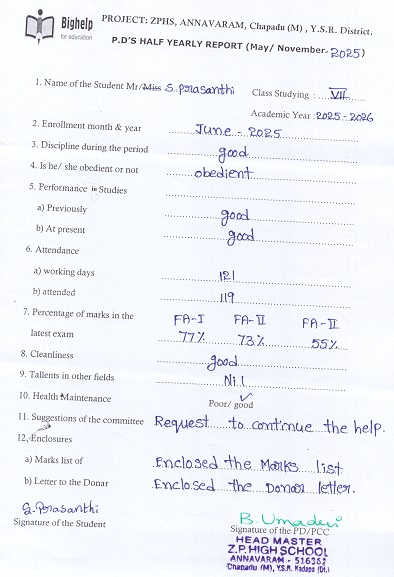 Bighelp
for education
PROJECT: ZPHS, ANNAVARAM, Chapadu (M) , Y.S.R. District.
P.D'S HALF YEARLY REPORT (May/ November-2025)
1. Name of the Student Mr/Miss S. Prasanthi Class Studying : VII
Academic Year : 2025 - 2026
2. Enrollment month & year June - 2025
3. Discipline during the period good
4. Is he/ she obedient or not obedient
5. Performance in Studies
a) Previously good
b) At present good
6. Attendance
a) working days 121
b) attended 119
7. Percentage of marks in the FA-I FA-II FA-II
latest exam 77% 73% 55%
8. Cleanliness good
9. Tallents in other fields Nil
10. Health Maintenance Poor/ good ✓
11. Suggestions of the committee Request to continue the help.
12. Enclosures
a) Marks list of Enclosed the Marks list
b) Letter to the Donar Enclosed the Donor letter.
S. Prasanthi
Signature of the Student
B. Umadevi
Signature of the PD/PCC
HEAD MASTER
Z.P. HIGH SCHOOL
ANNAVARAM - 516362
Chapadu (M), Y.S.R. Kadapa (Dt.)